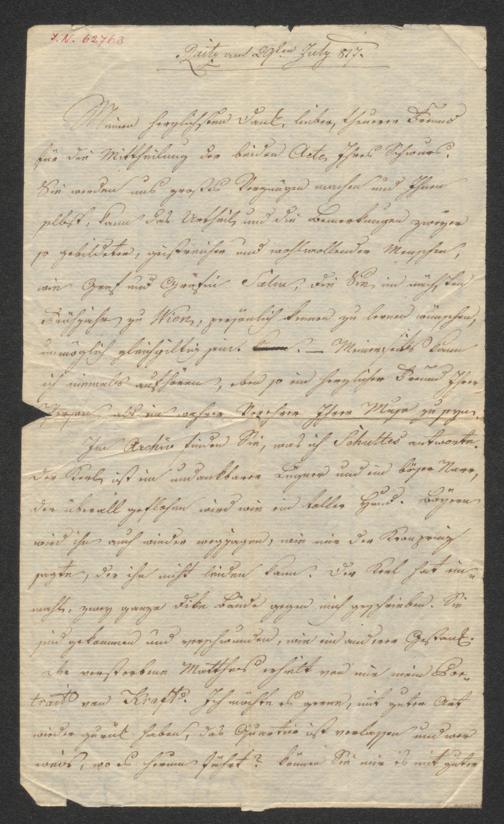 I. N. 62763
Raitz am 29ten July 817.
Meinen herzlichsten Dank, lieber, theurer Freund
für die Mittheilung der beiden Acte Ihres Schwurs.
Sie werden uns großes Vergnügen machen und Ihnen
selbst, kann das Urtheil und die Bemerkungen zweyer
so gebildeter, geistreicher und wohlwollender Menschen,
wie Graf und Gräfin Salm, die Sie im nächsten
Frühjahr zu Wien, persönlich kennen zu lernen wünschen,
unmöglich gleichgiltig seyn. — Meinerseits kann
ich niemals aufhören, eben so ein herzlicher Freund Ihrer
Person, als ein wahrer Verehrer Ihrer Muse zu seyn.
Im Archiv finden Sie, was ich Schultes antworte.
Der Kerl ist ein undankbarer Lügner und ein böser Narr,
der überall geflohen wird wie ein toller Hund. Bayern
wird ihn auch wieder wegjagen, wie mir der Kronprinz
sagte, der ihn nicht leiden kann. Der Kerl hat ein-
mahl, zwey ganze dike Bände gegen mich geschrieben. Sie
sind gekommen und verschwunden, wie ein anderer Gestank.
verstorbene Matthes erhielt von mir mein Por-
trait von Kraft. Ich möchte es gerne, mit guter Art
wieder zurük haben, das Quartier ist verlassen und wer
weiß, wo es herum fährt? Können Sie mir es mit guter